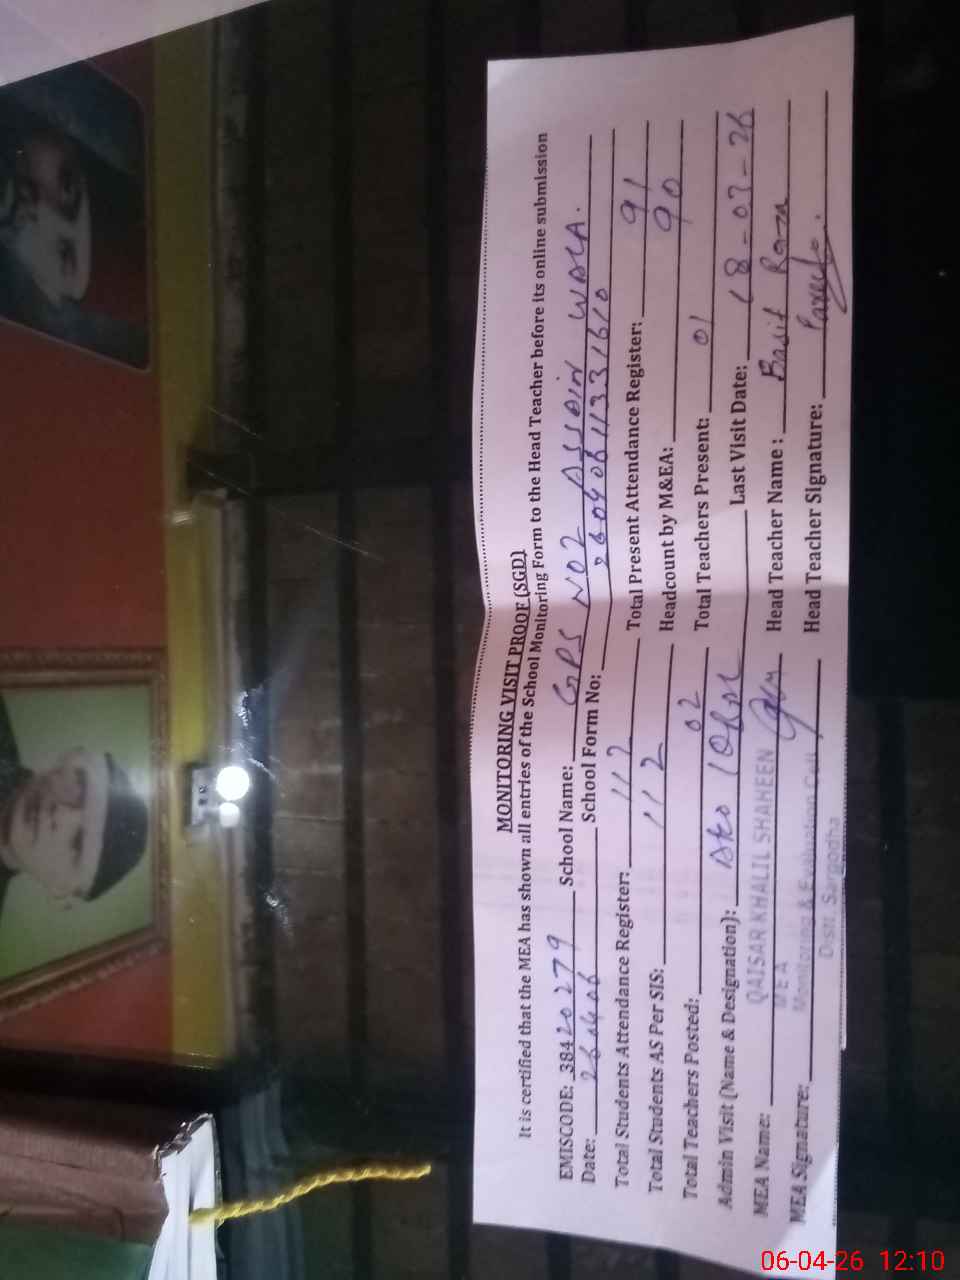 MONITORING VISIT PROOF (SGD)
It is certified that the MEA has shown all entries of the School Monitoring Form to the Head Teacher before its online submission
EMISCODE: 38420279 School Name: GPS NO2 ASSAIN WALA.
Date: 260406 School Form No: 26040611331610
Total Students Attendance Register: 112 Total Present Attendance Register: 91
Total Students AS Per SIS: 112 Headcount by M&EA: 90
Total Teachers Posted: 02 Total Teachers Present: 01
Admin Visit (Name & Designation): Last Visit Date: 18-03-26
MEA Name: QAISAR KHALIL SHAHEEN Head Teacher Name: Basit Raza
MEA
MEA Signature: Monitoring & Evaluation Cell Head Teacher Signature:
Distt. Sargodha
06-04-26 12:10